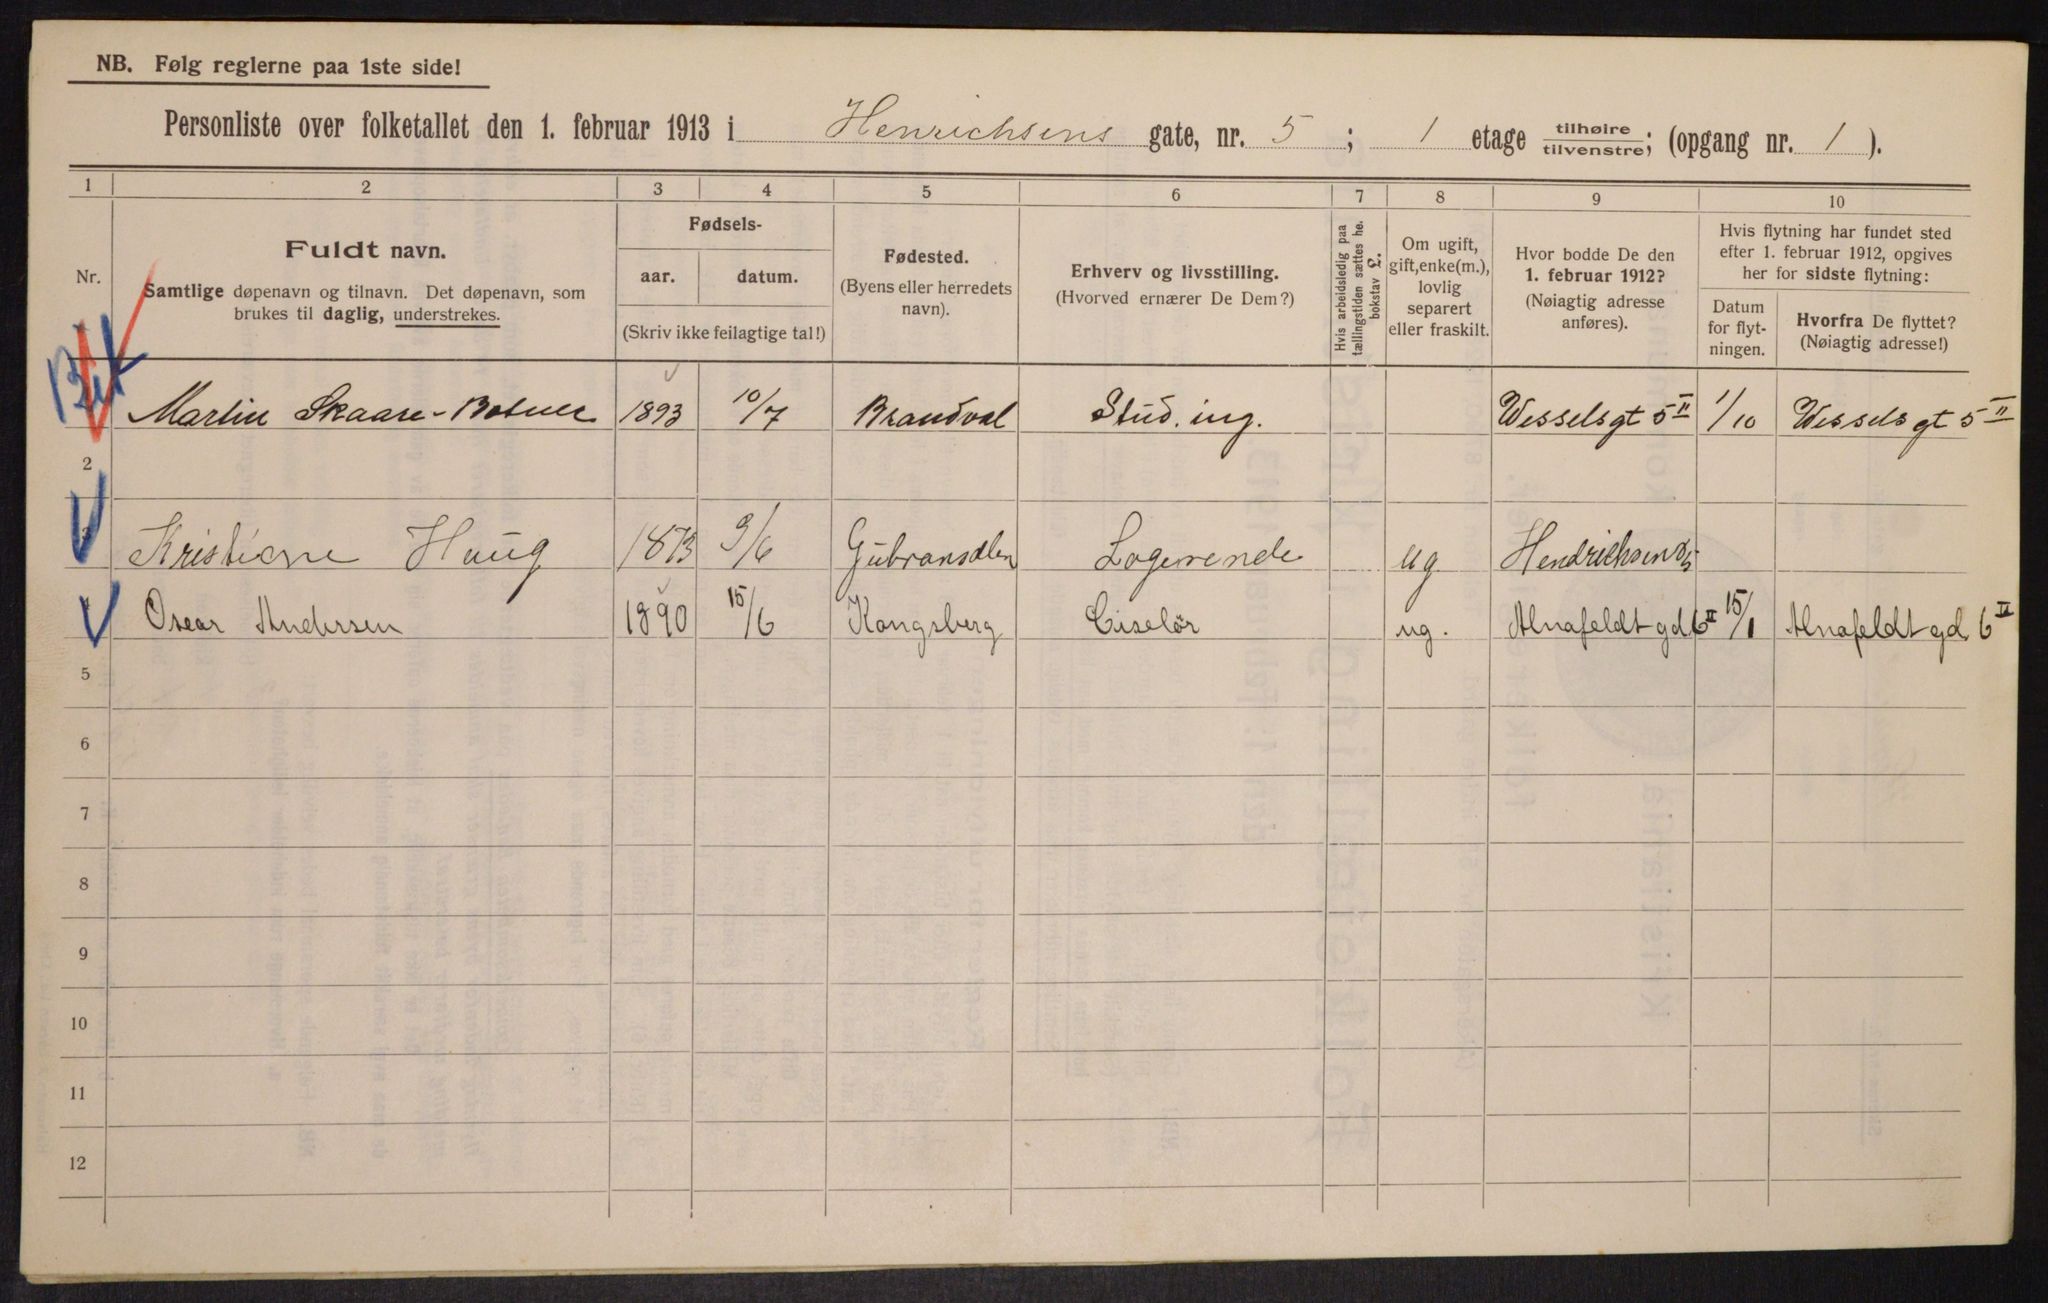 NB. Følg reglerne paa 1ste side!
Personliste over folketallet den 1. februar 1913 i Henrichsens gate, nr. 5; 1 etage tilhøire tilvenstre; (opgang nr. 1).
1 2 3 4 5 6 7 8 9 10
Nr.
Fuldt navn.
Samtlige døpenavn og tilnavn. Det døpenavn, som
brukes til daglig, understrekes.
Fødsels-
aar. datum.
(Skriv ikke feilagtige tal!)
Fødested.
(Byens eller herredets
navn).
Erhverv og livsstilling.
(Hvorved ernærer De Dem?)
Hvis arbeidsledig paa
tællingstiden sættes her
bokstav L.
Om ugift,
gift, enke(m.),
lovlig
separert
eller fraskilt.
Hvor bodde De den
1. februar 1912?
(Nøiagtig adresse
anføres).
Hvis flytning har fundet sted
efter 1. februar 1912, opgives
her for sidste flytning:
Datum
for flyt-
ningen.
Hvorfra De flyttet?
(Nøiagtig adresse!)
Martin Skaare- 1893 10/7 Brandval Stud. ing. Wesselsgt 5 II 1/10 Wesselsgt 5 II
2
3 Kristiane Haug 1873 9/6 Gubransdlen Logerende ug
4 Oscar Andersen 1890 15/6 Kongsberg Ciselør ug. 6 II 15/1 6 II
5
6
7
8
9
10
11
12